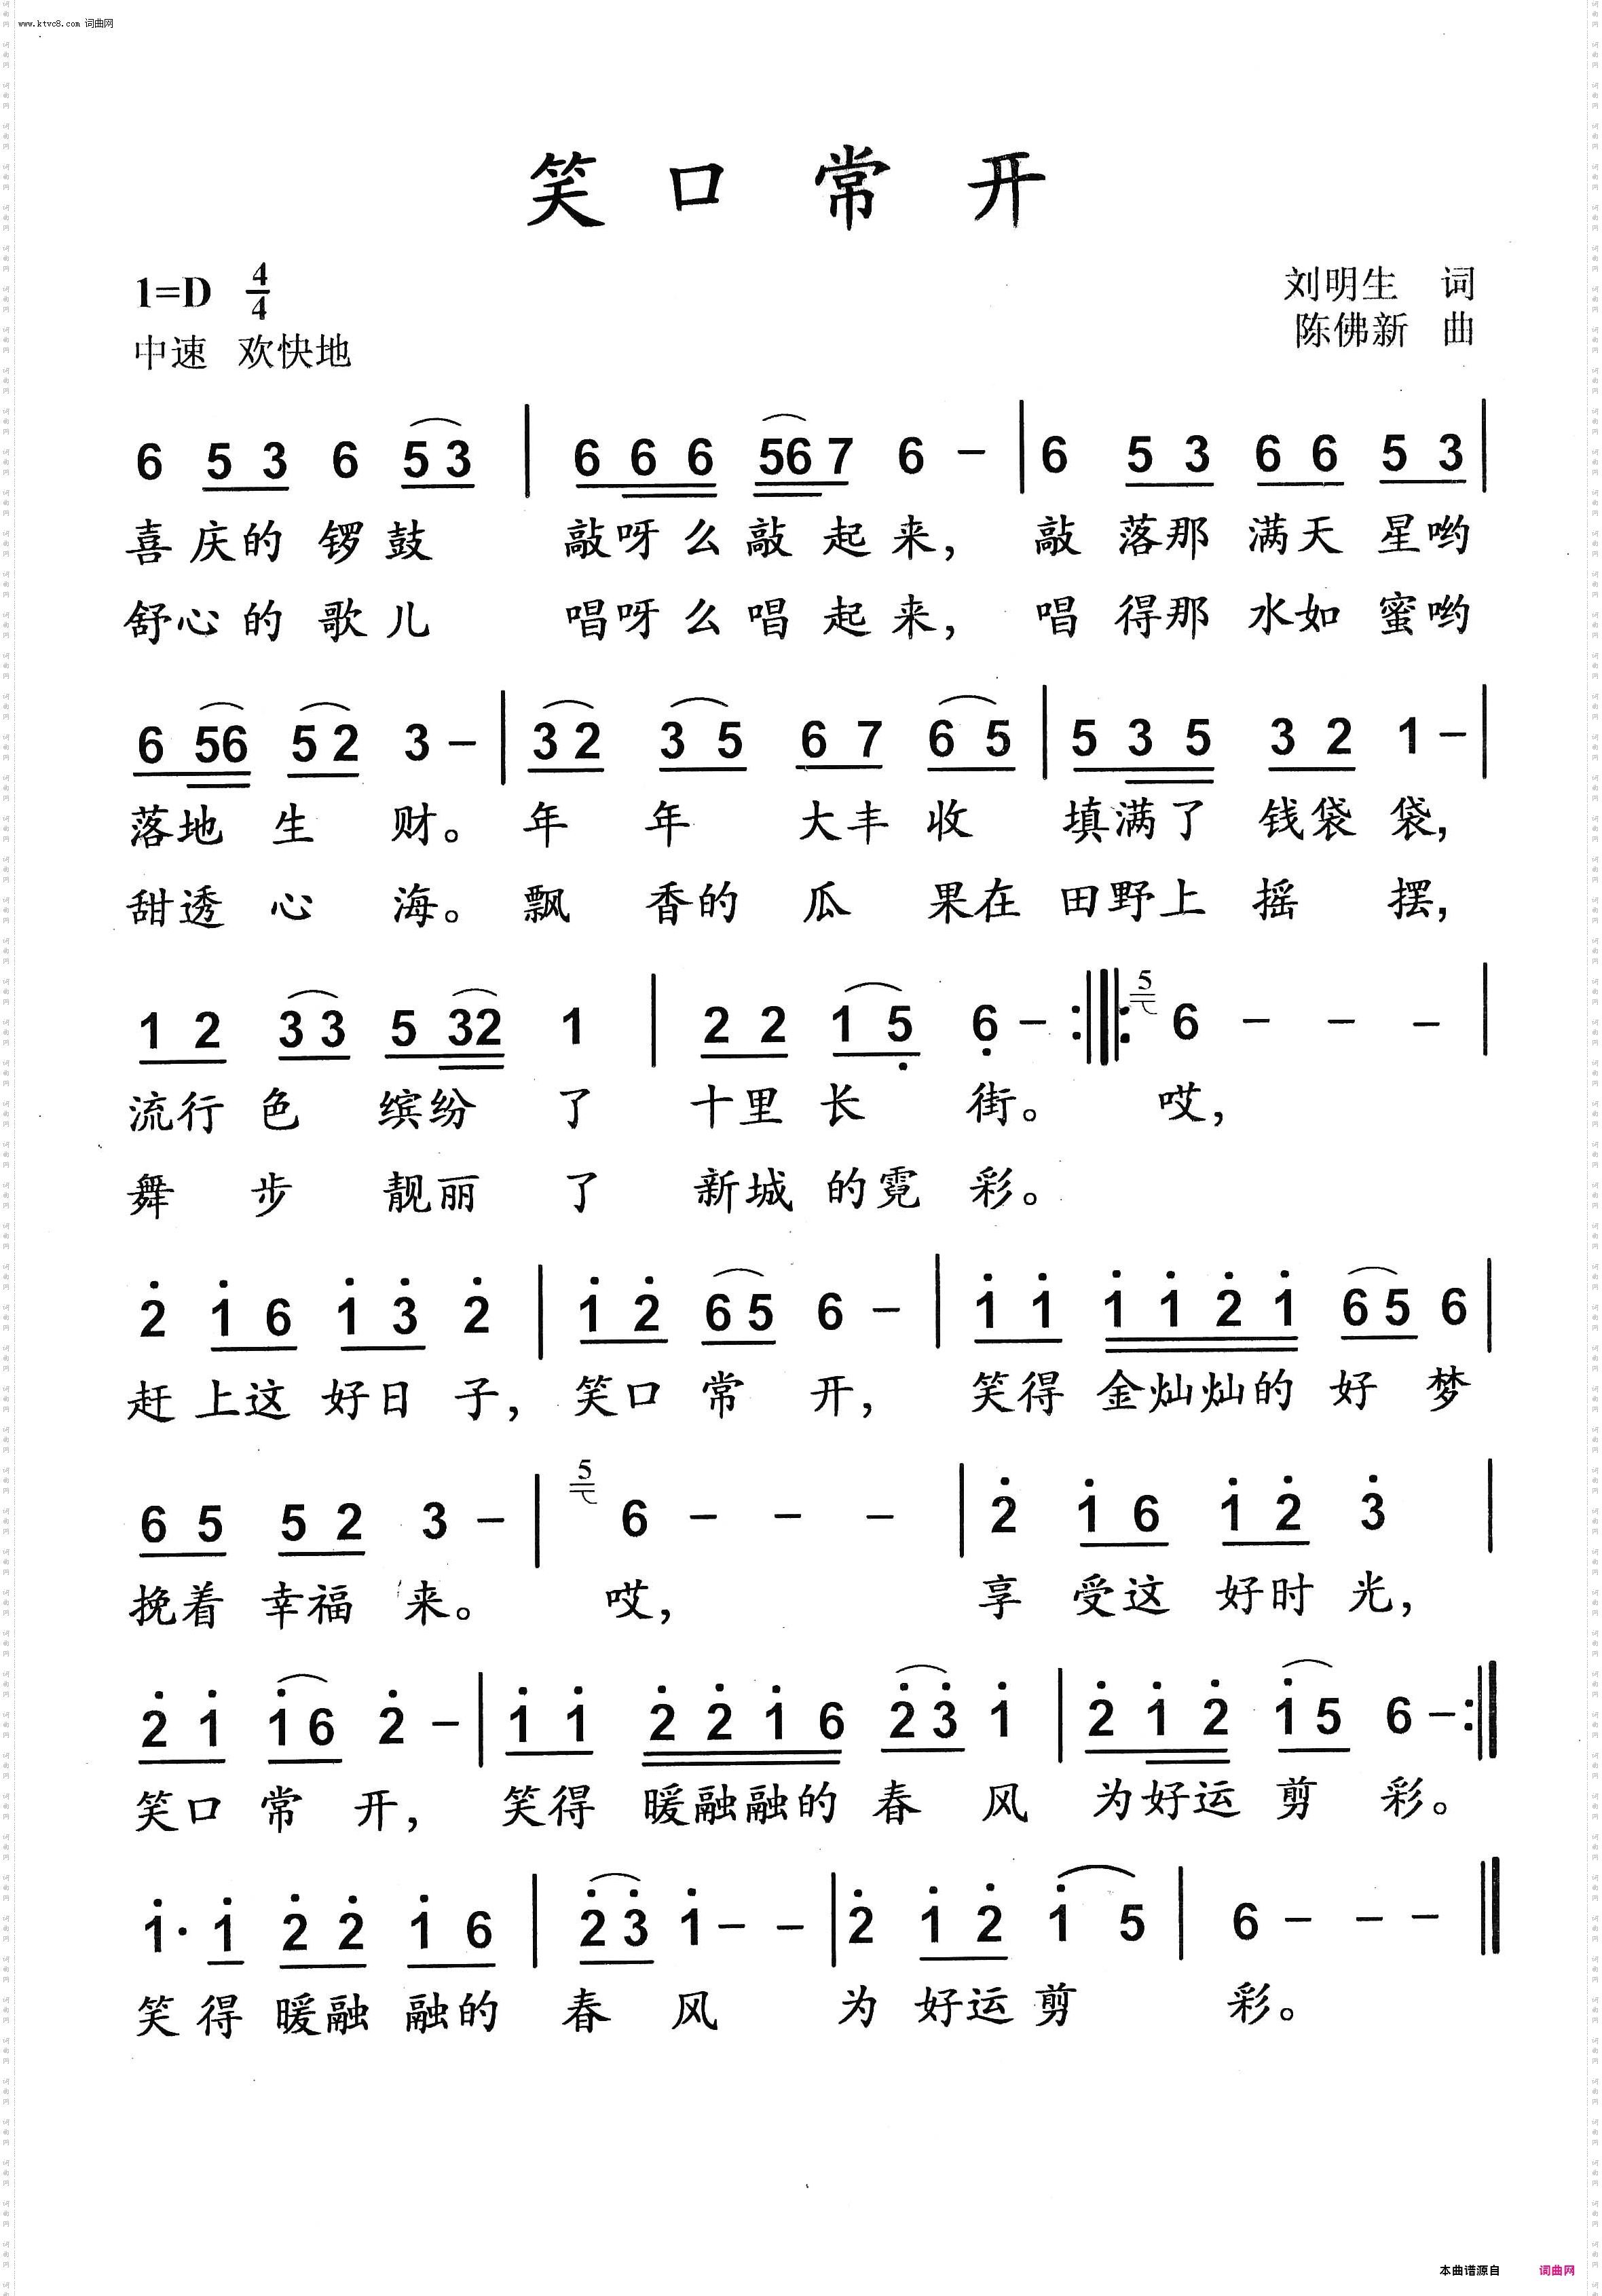 www.ktvc8.com 词曲网
笑口常开
1=D 4/4
刘明生 词
中速 欢快地
陈佛新 曲
6 5 3 6 5 3 | 6 6 6 5 6 7 6 – | 6 5 3 6 6 5 3 |
喜庆的锣鼓 敲呀么敲起来, 敲落那满天星哟
舒心的歌儿 唱呀么唱起来, 唱得那水如蜜哟
6 5 6 5 2 3 – | 3 2 3 5 6 7 6 5 | 5 3 5 3 2 1 – |
落地生财。年年大丰收 填满了钱袋袋,
甜透心海。飘香的瓜果在田野上摇摆,
1 2 3 3 5 3 2 1 | 2 2 1 5̣ 6̣ – :‖: 5 6 – – – |
流行色缤纷了 十里长街。 哎,
舞步靓丽了 新城的霓彩。
2̇ 1̇ 6 1̇ 3̇ 2̇ | 1̇ 2̇ 6 5 6 – | 1̇ 1̇ 1̇ 1̇ 2̇ 1̇ 6 5 6 |
赶上这好日子, 笑口常开, 笑得金灿灿的好梦
6 5 5 2 3 – | 5 6 – – – | 2̇ 1̇ 6 1̇ 2̇ 3̇ |
挽着幸福来。 哎, 享受这好时光,
2̇ 1̇ 1̇ 6 2̇ – | 1̇ 1̇ 2̇ 2̇ 1̇ 6 2̇ 3̇ 1̇ | 2̇ 1̇ 2̇ 1̇ 5 6 – :‖
笑口常开, 笑得暖融融的春风 为好运剪彩。
1̇· 1̇ 2̇ 2̇ 1̇ 6 | 2̇ 3̇ 1̇ – – | 2̇ 1̇ 2̇ 1̇ 5 | 6 – – – ‖
笑得暖融融的 春风 为好运剪 彩。
本曲谱源自 词曲网